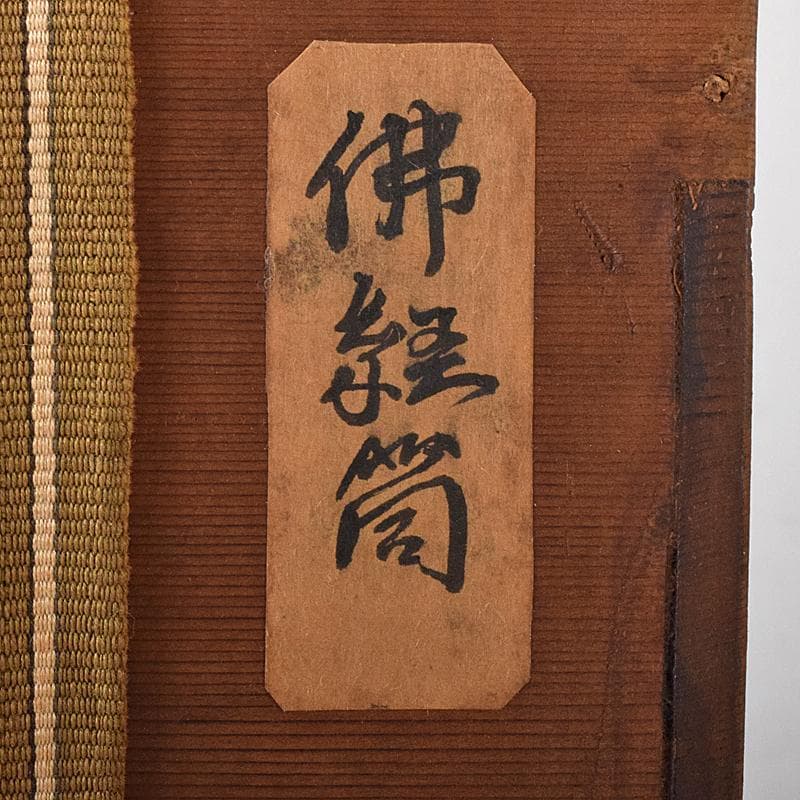 佛経筒